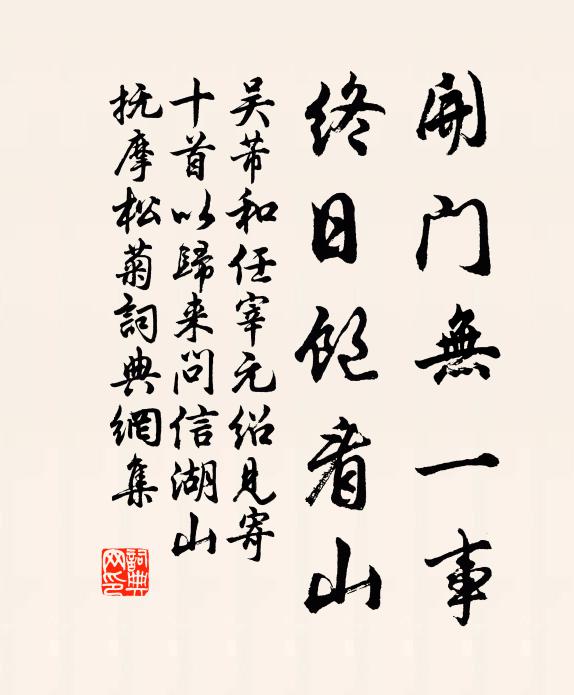 開門無一事
終日飽看山
吴芾和任宰元绍見寄
十首以歸来問信湖山
抚摩松菊詞典網集
詞典網印